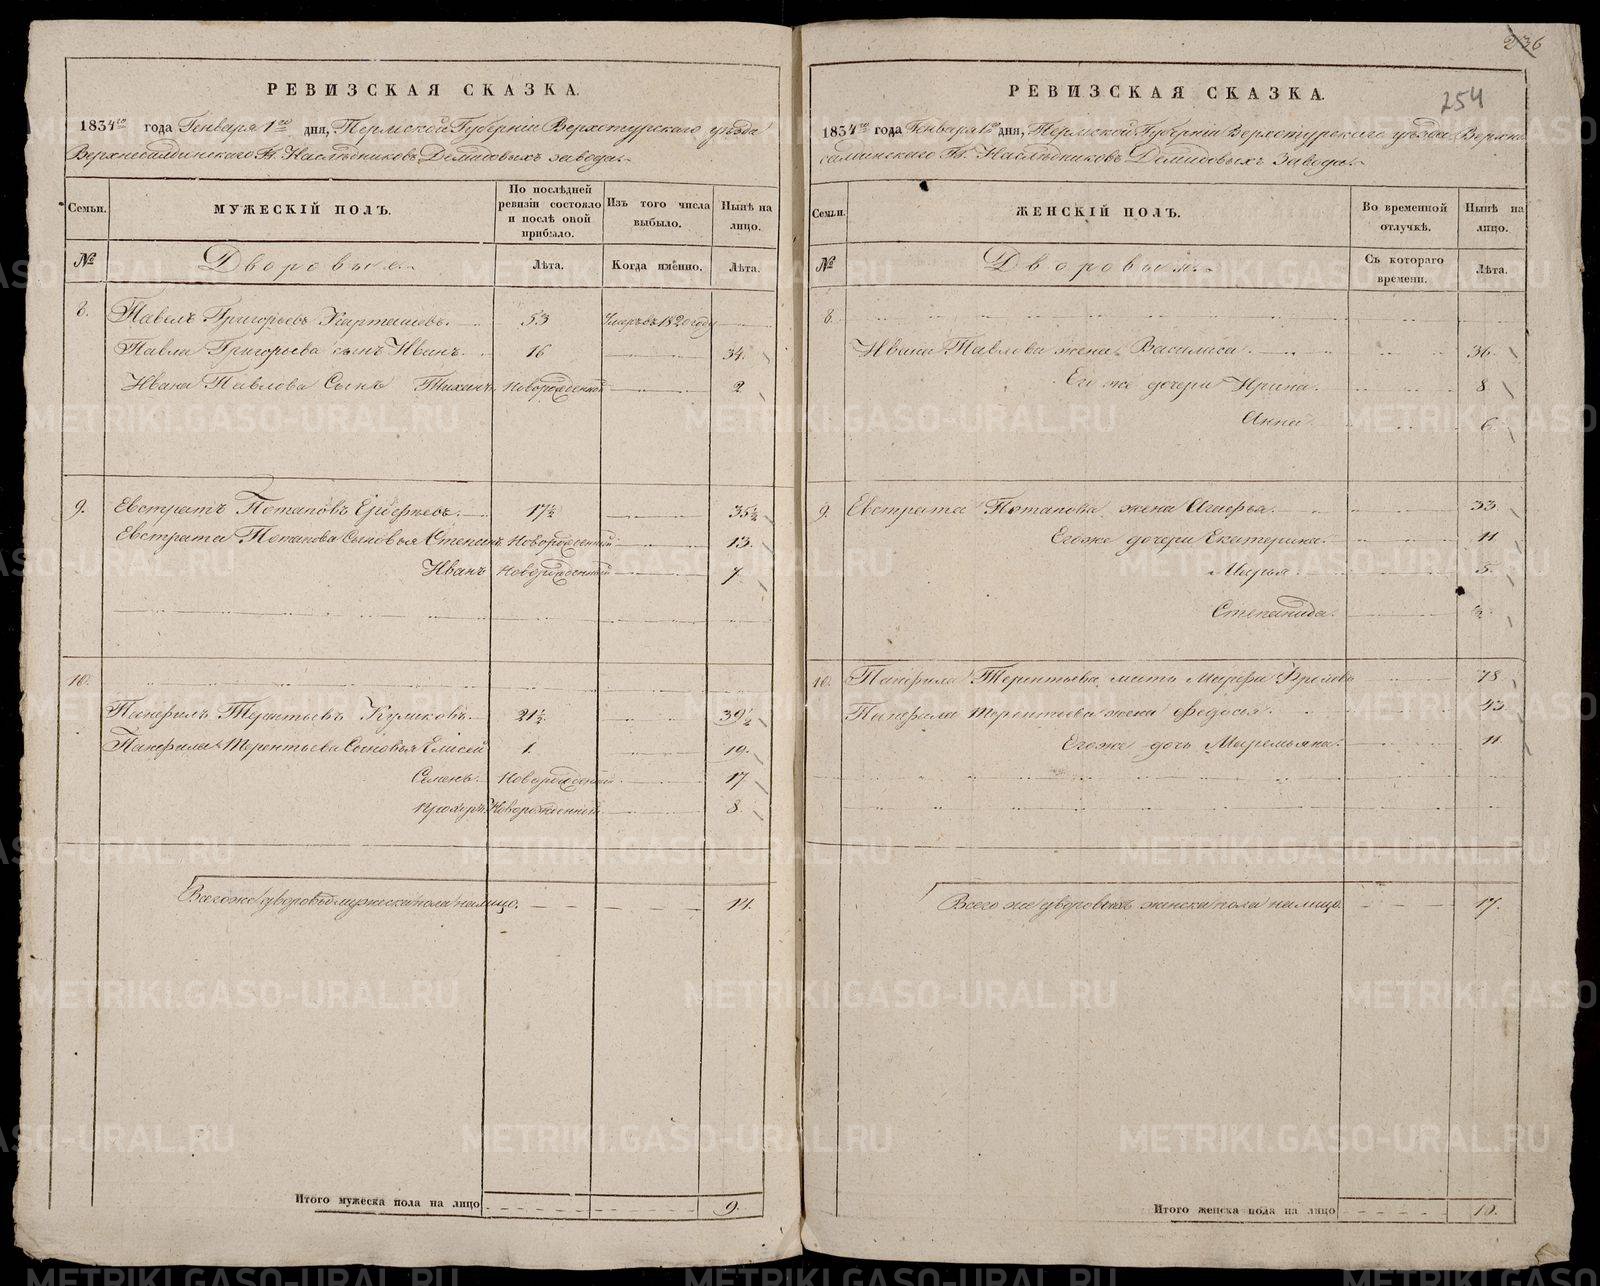 236
254
РЕВИЗСКАЯ СКАЗКА.
1834го года Генваря 1го дня, Пермской Губерніи Верхотурскаго уѣзда
Верхнесалдинскаго Гг. Наслѣдниковъ Демидовыхъ завода.
Семьи.
МУЖЕСКІЙ ПОЛЪ.
По послѣдней ревизіи состояло и послѣ оной прибыло.
Изъ того числа выбыло.
Нынѣ на лицо.
№
Дворовые.
Лѣта.
Когда именно.
Лѣта.
8. Павелъ Григорьевъ 53 Умеръ въ 1820 году
Павла Григорьева сынъ Иванъ. 16 34.
Ивана Павлова Сынъ Тиханъ. Новорожденной 2.
9. Евстратъ Потаповъ 17½ 35½
Евстрата Потапова Сыновья Степанъ Новорожденный 13.
Иванъ Новорожденный 7.
10.
Панфилъ Терентьевъ Куликовъ. 21½. 39½
Панфила Терентьева Сыновья Елисей 1. 19.
Семенъ. Новорожденный 17.
Прохоръ. Новорожденный 8.
Всего же дворовыхъ мужеска пола на лицо. 14.
Итого мужеска пола на лицо 9.
РЕВИЗСКАЯ СКАЗКА.
1834го года Генваря 1го дня, Пермской Губерніи Верхотурскаго уѣзда Верхне
салдинскаго Гг. Наслѣдниковъ Демидовыхъ Завода.
Семьи.
ЖЕНСКІЙ ПОЛЪ.
Во временной отлучкѣ.
Нынѣ на лицо.
№
Дворовыя.
Съ котораго времени.
Лѣта.
8.
Ивана Павлова жена Василиса. 36.
Его же дочери Ирина. 8.
Анна 6.
9. Евстрата Потапова жена Агафья. 33.
Егоже дочери Екатерина. 11
Марья. 5.
Степанида. ½.
10. Панфила Терентьева мать Марфа 78
Панфила Терентьева жена Федосья 43
Егоже дочь Маремьяна. 11
Всего же дворовыхъ женска пола на лицо. 17.
Итого женска пола на лицо 10.
METRIKI.GASO-URAL.RU